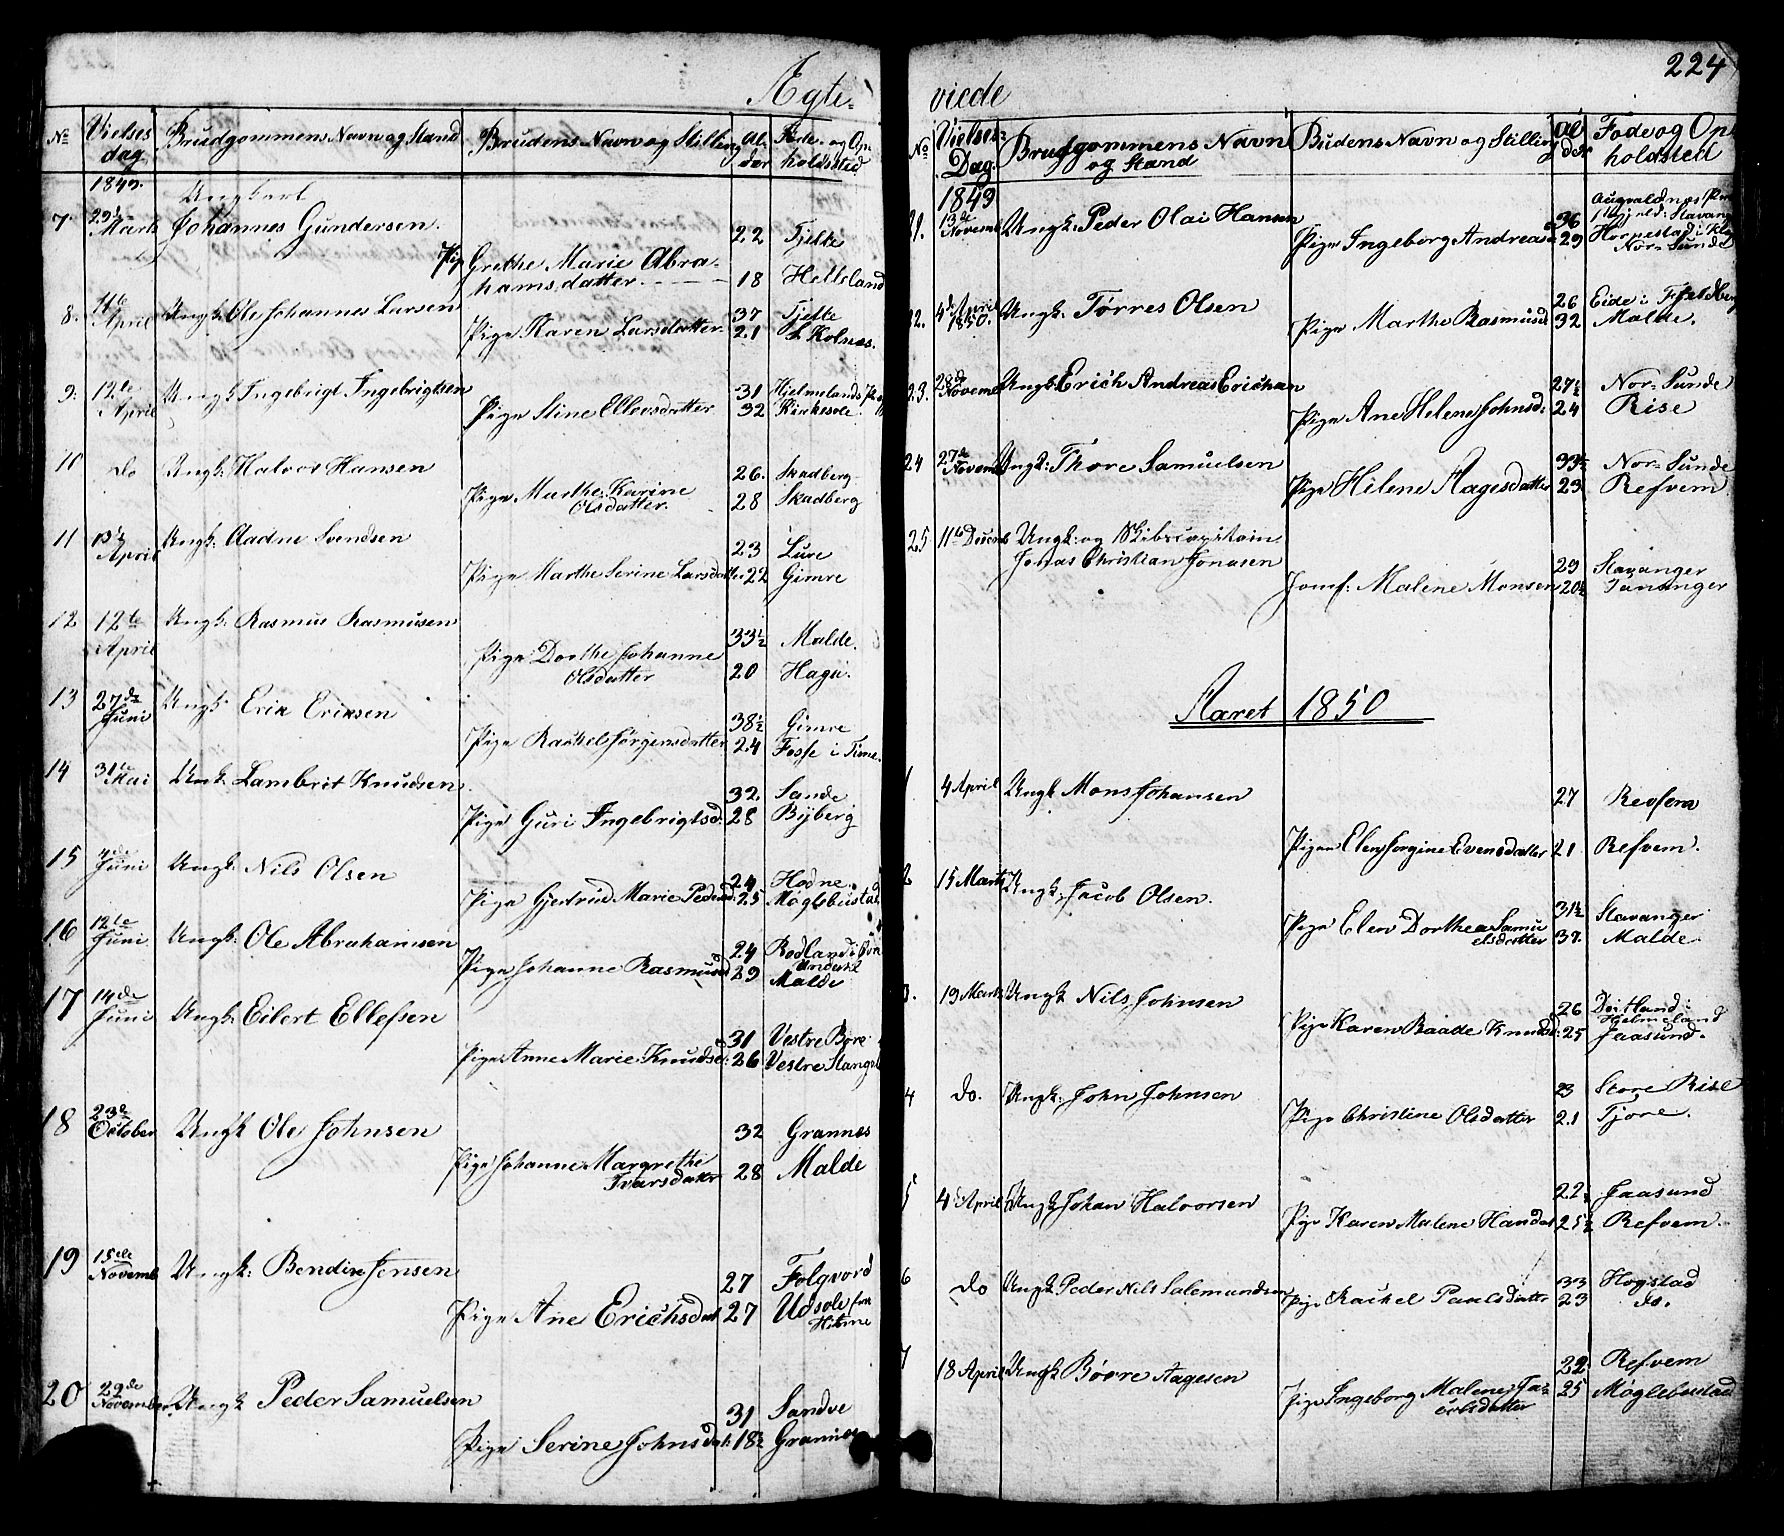 224
Ægte-
№ Vielses dag Brudgommens Navn og Stand Brudens Navn og Stilling Al-der Føde- og Op-holdssted
1849. Ungkarl
7. 29de Marts Johannes Gundersen. 22 Tjelte
Pige Grethe Marie Abra-
hamsdatter 18 Helleland
8. 11te April Ungk. Ole Johannes Larsen 37 Tjelte
Pige Karen Larsdatter 21 Kolnæs.
9. 12te April Ungk. Ingebrigt Ingebrigtsen 31 Hjelmelands
Pige Stine Ellevsdatter 32 Kirkesole.
10 do Ungk. Halvor Hansen 26. Skadberg
Pige Marthe Karine
Olsdatter. 28 Skadberg
11 13de April Ungk. Aadne Svendsen 23 Lure
Pige Marthe Serine Larsdatter 22 Gimre
12 12te April Ungk. Rasmus Rasmusen 33½ Malde.
Pige Dorthe Johanne
Olsdatter 20 Haga.
13 27de Juni Ungk. Erik Eriksen 38½ Gimre
Pige Rachel Jørgensdatter 24 Fosse i Time.
14 31te Mai Ungk. Lambrit Knudsen 32 Sande
Pige Guri Ingebrigtsd. 28 Byberg
15 Juni Ungk. Nils Olsen 24 Hodne.
Pige Gjertrud Marie Pedersd. 25 Møglebustad
16 12te Juni Ungk. Ole Abrahamsen 24 Rodland i
Pige Johanne Rasmusd 29 Malde
17 14de Juni Ungk. Eilert Ellefsen 31 Vestre Børe
Pige Anne Marie Knudsd. 26 Vestre Stangel
18 23de October Ungk Ole Johnsen 32 Grannes
Pige Johanne Margrethe
Ivarsdatter 28 Malde
19 15de Novemb Ungk. Bendix Jensen 27 Folqvord
Pige Ane Erichsdat 27 Udsole
20 22de November Ungk Peder Samuelsen 31 Sandve
Pige Serine Johnsdat. 18½ Grannes
viede
№ Vielses Dag. Brudgommens Navn og Stand Budens Navn og Stilling Al der Føde og Op-holdsted
1849
21. 13de Novemb Ungk. Peder Olai Hansen 36 Augvaldnæs
Stavanger
Pige Ingeborg Andreasd 29 Hornestad i
Nor-Sunde
22. 4de April 1850. Ungk. Tørres Olsen 26 Eide i
Pige Marthe Rasmusd 32 Malde.
23. 28de Novemb Ungk. Erich Andreas Erichsen 27½ Nor-Sunde
Pige Ane Helene Johnsd. 24 Rise
24 27de Novemb Ungk. Thore Samuelsen 33½ Nor-Sunde
Pige Helene Aagesdatter 23 Refvem
25 11te Decemb Ungk. og Skibscapitain
Jonas Christian Jonasen 29 Stavanger
Jomf. Malene Monsen 20½ Tananger
Aaret 1850
1 4 April Ungk Mons Johansen 27 Revfem
Pigen Elen Jorgine Evensdatter 21 Refvem.
2 15 Marts Ungk. Jacob Olsen. 31½ Stavanger
Pige Elen Dorthea Samu
elsdatter 37. Malde.
3. 19 Marts Ungk Nils Johnsen 26
Hjelmeland
Pige Karen Baade Knudsd. 25 Jaasund.
4 do. Ungk. John Johnsen 23 Store Rise
Pige Christine Olsdatter 21 Tjøre.
5 4 April Ungk Johan Halvorsen 22½ Jaasund
Pige Karen Malene Hansdat 25½ Refvem.
6 do Ungk Peder Nils Salemundsen 33 Hogstad
Pige Rachel Paulsdatter 23 do.
7 18 April Ungk Børre Aagesen 22 Refvem
Pige Ingeborg Malene Ja-
cobsdatter 25 Møglebustad